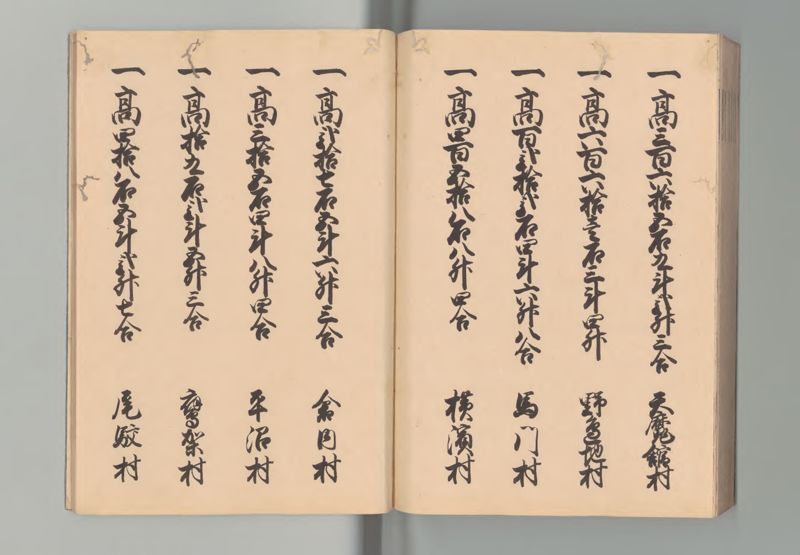 一高三百六拾五石九斗弐升三合 天魔舘村
一高六百六拾壱石三斗四升 野邉地村
一高百弐拾弐石四斗六升八合 馬門村
一高四百五拾八石八升四合 横濱村
一高弐拾七石五斗六升三合 倉内村
一高三拾五石四斗八升四合 平沼村
一高拾九石弐斗五升三合 鷹架村
一高四拾八石五斗弐升七合 尾駮村